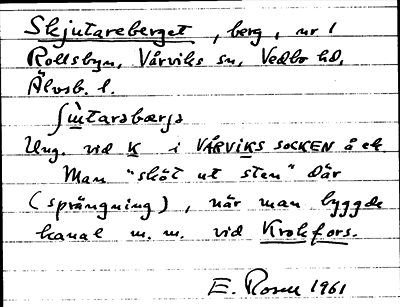 Skjutareberget, berg, nr 1
Rollsbyn, Vårviks sn, Vedbo hd,
Älvsb. l.
Ung. vid K i VÅRVIKS SOCKEN å ek.
Man "sköt ut sten" där
(sprängning), när man byggde
kanal m. m. vid Krokfors.
E. Rosen 1961